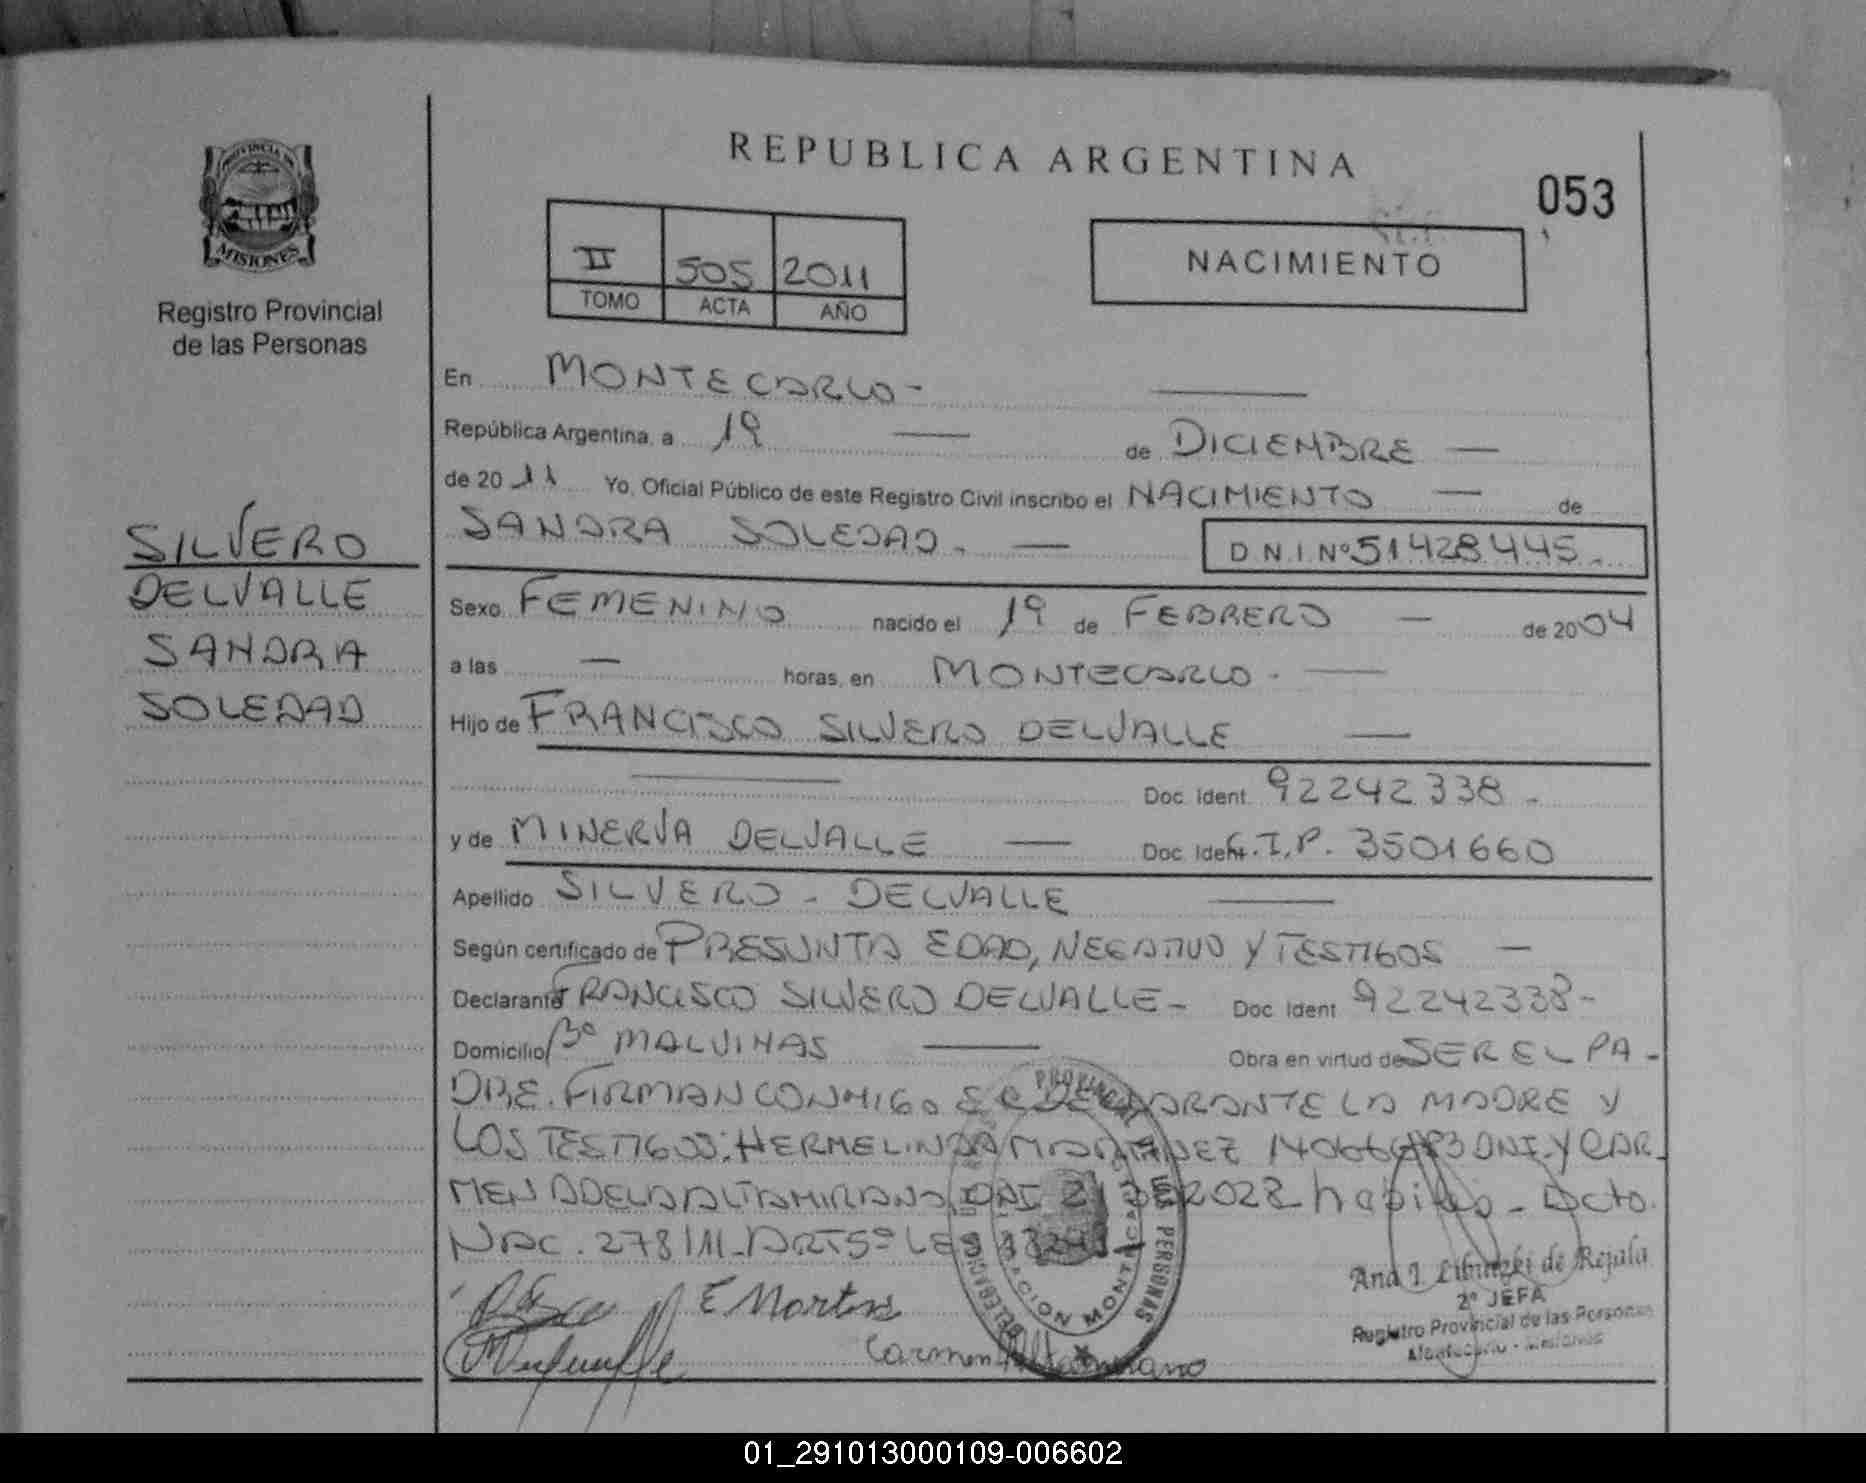 REPUBLICA ARGENTINA
053
PROVINCIA DE
MISIONES
Registro Provincial
de las Personas
II 505 2011
TOMO ACTA AÑO
NACIMIENTO
SILVERO
DELVALLE
SANDRA
SOLEDAD
En MONTECARLO-
República Argentina, a 19 de DICIEMBRE
de 2011 Yo, Oficial Público de este Registro Civil inscribo el NACIMIENTO de
SANDRA SOLEDAD. D.N.I.Nº 51428445.
Sexo FEMENINO nacido el 19 de FEBRERO de 2004
a las — horas, en MONTECARLO.
Hijo de FRANCISCO SILVERO DELVALLE
Doc. Ident. 92242338.
y de MINERVA DELVALLE Doc. Ident. C.I.P. 3501660
Apellido SILVERO - DELVALLE
Según certificado de PRESUNTA EDAD, NEGATIVO Y TESTIGOS
Declarante FRANCISCO SILVERO DELVALLE- Doc. Ident. 92242338-
Domicilio Bº MALVINAS Obra en virtud de SER EL PA-
DRE. FIRMAN CONMIGO EL DECLARANTE LA MADRE Y
LOS TESTIGOS: HERMELINDA MARTINEZ DNI. Y CAR-
MEN ADELA ALTAMIRANO, DNI habiles - Dcto.
NAC. 278/11-ART 5º LEY
E Martines
Carmen Altamirano
Ana J. de Rejala
2º JEFA
Registro Provincial de las Personas
Montecarlo - Misiones
01_291013000109-006602